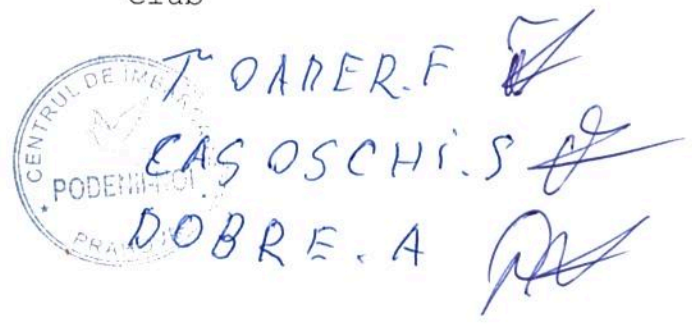 Club
TOADER.F
CASOSCHI.S
DOBRE.A
CENTRUL DE
PODENII